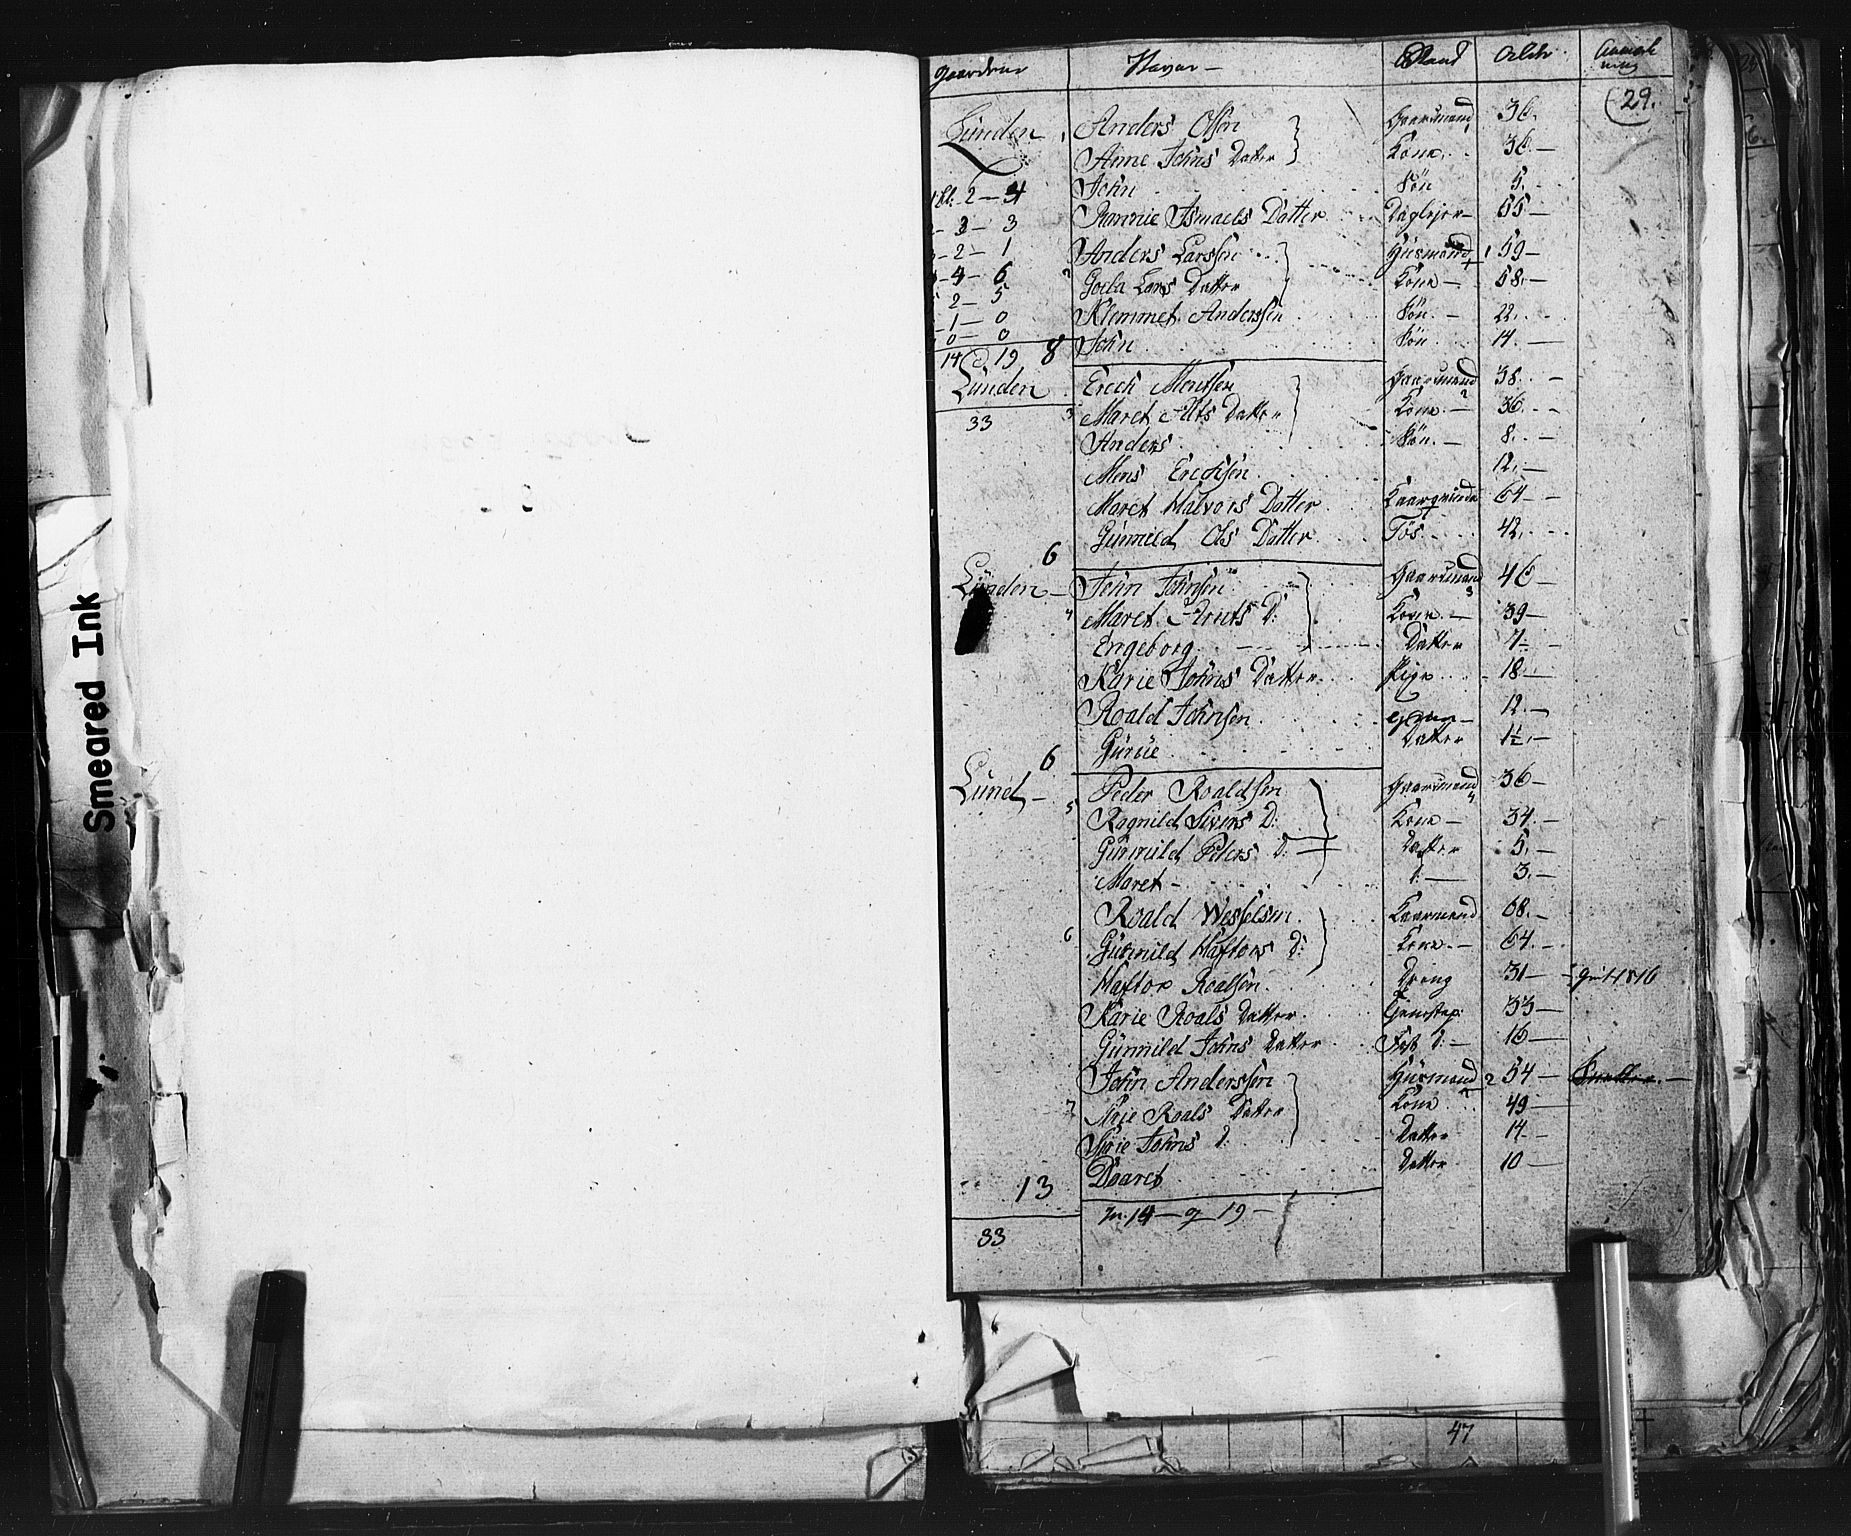 Smeared Ink
Gaardene Navne Stand Alder Anmærkning
(29.
Lunden 1 Anders Olsen Gaardmand 36.
Anne Johns Datter Kone 36.
2 — 4 John Søn 5.
3 — 3 Rannie Ismaels Datter 55
2 — 1 Anders Larssen Huusmand 1 59
4 — 6 2 Lars Datter Kone 58.
2 — 5
1 — 0 Klemmet Anderssen Søn 22.
0 — 0 John Søn 14.
14 19 8
Lunden Erich Mentsen Gaardmand 2 38.
3 Maret Datter Kone 36.
33 Anders Søn 8.
Mens Erichsen 12.
Maret Halvors Datter 64
6 Gunnild Ols Datter Tøs 42.
Lunden John Johnsen Gaardmand 3 46
4 Maret Arnts D: Kone 39
Engeborg Datter 7
Karie Johns Datter Pige 18
Roald Johnsen 12
6 Gurue Datter 1½
Lund Peder Roaldsen Gaardmand 4 36
5 Ragnild Sivers D: Kone 34.
Gunnild Peders D: Datter 5.
Maret D: 3.
Roald Wesselsen 68.
6 Gunnild Haftors D: Kone 64.
Haftor Roalsen Dreng 31
Karie Roals Datter 33
Gunnild Johns Datter D: 16
John Anderssen Huusmand 2 54
7 Roals Datter Kone 49
Johns D: Datter 14
13 Daaret Datter 10
M. 14 — q 19
33
47